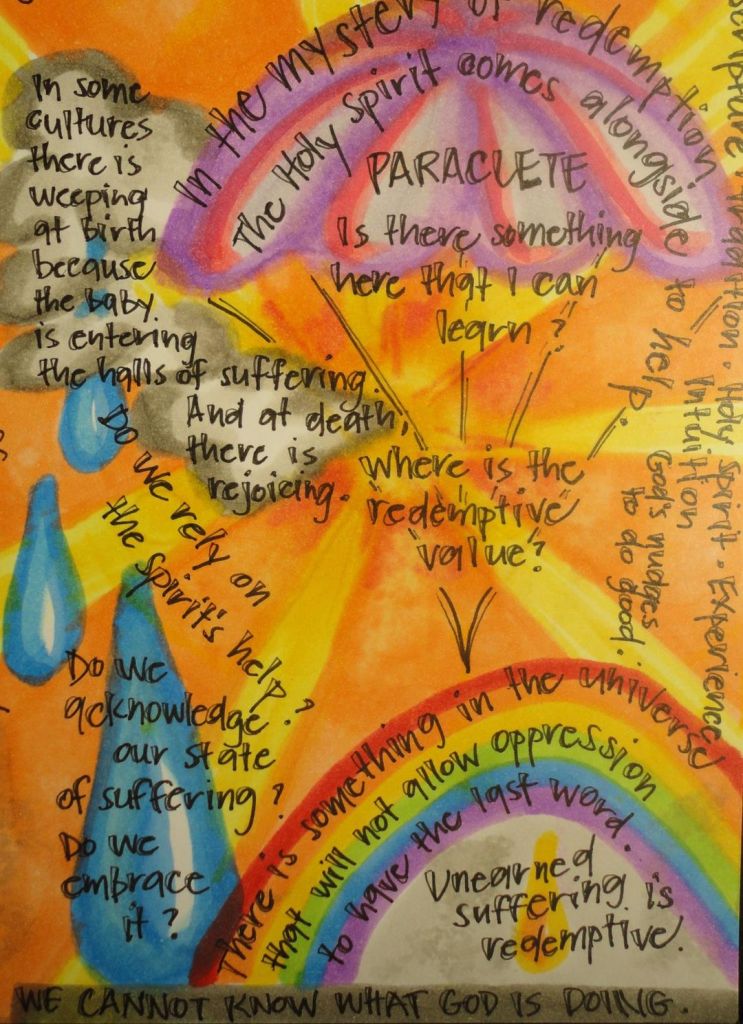 In the mystery of redemption
The Holy Spirit comes alongside to help.
PARACLETE
Is there something
here that I can
learn?
In some
cultures
there is
weeping
at birth
because
the baby
is entering
the halls of suffering.
And at death,
there is
rejoicing.
where is the
redemptive
value?
Do we rely on
the spirit's help?
Do we
acknowledge
our state
of suffering?
Do we
embrace
it?
scripture · tradition · Holy Spirit · Experience
Intuition
God's nudges
to do good.
There is something in the universe
that will not allow oppression
to have the last word.
Unearned
suffering is
redemptive.
WE CANNOT KNOW WHAT GOD IS DOING.